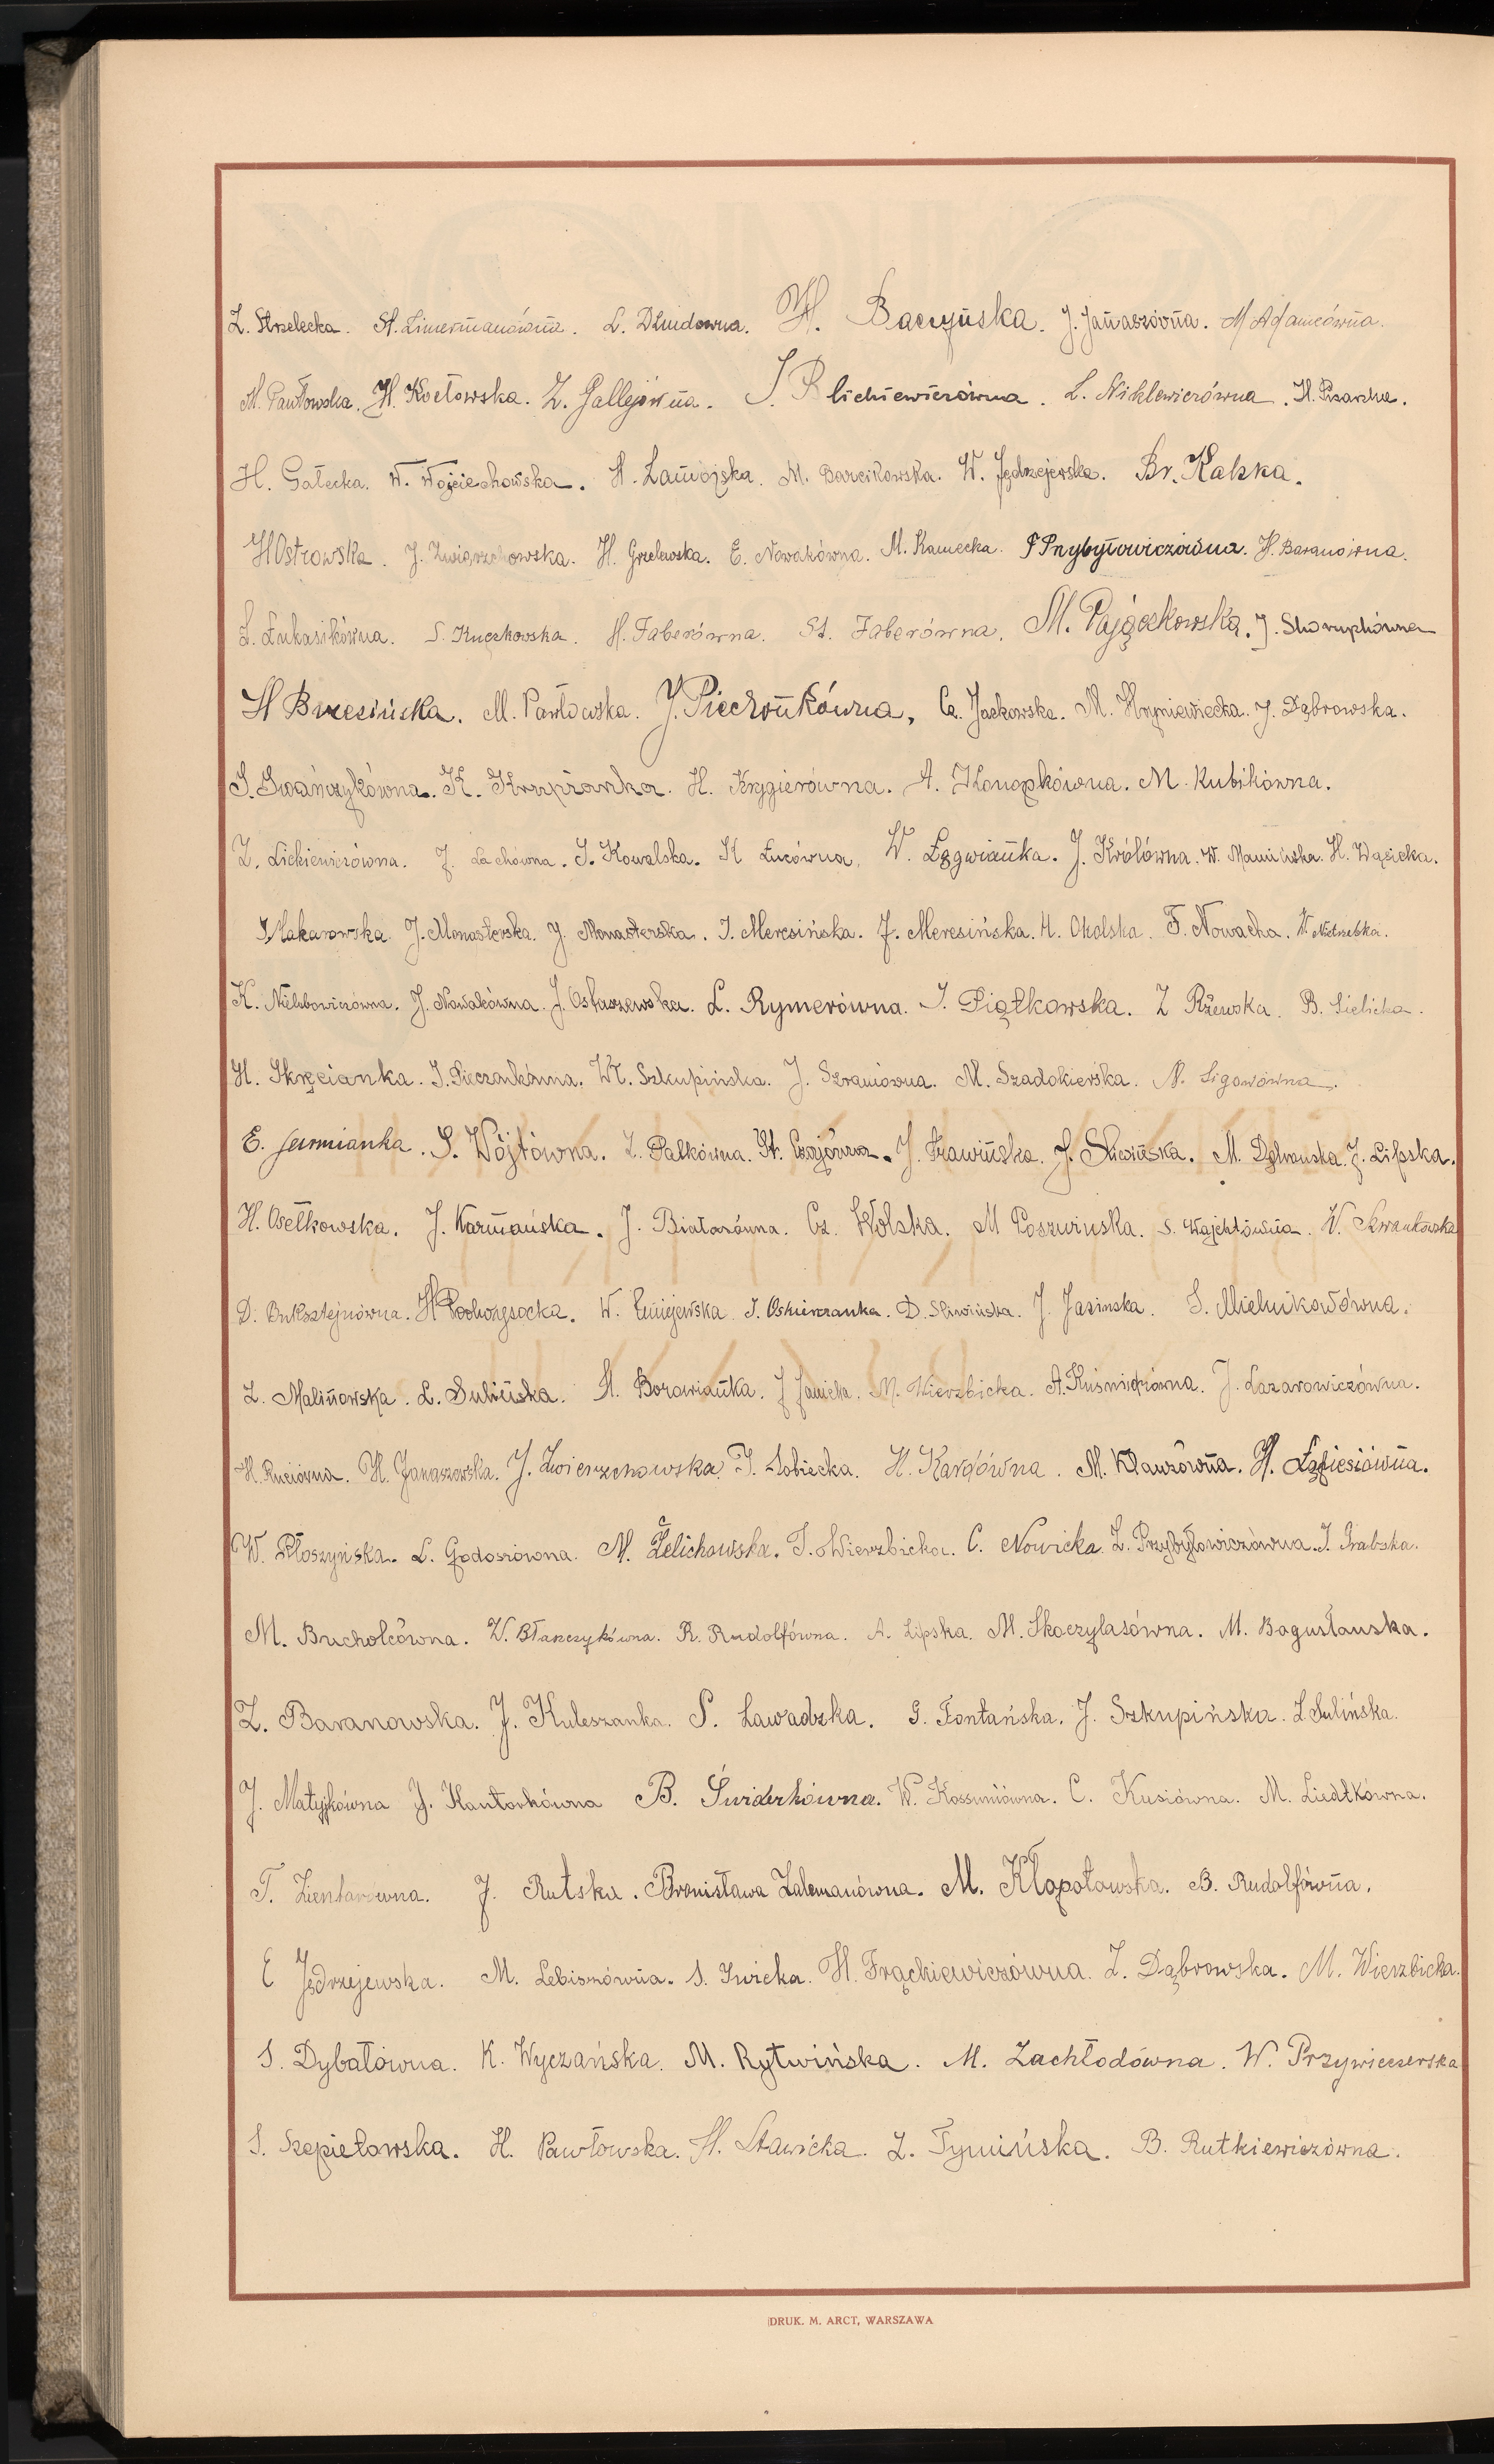 Z. Strzelecka. St. Zimermanówna. L. Dłudowna. H. Baczyńska. J. Janaszówna. M Adamcówna.
M. Pawłowska. H. Kocłowska. Z. Gallejówna. J. Blichiewiczówna. L. Niklewiczówna. H. Pisarska.
H. Gałecka. W. Wojciechowska. H. Zawojska. M. Barcikowska. W. Jędrzejewska. Br. Kalska.
H Ostrowska. J. Zwierzchowska. H. Grzelewska. E. Nowakówna. M. Kamecka. F Przybyłowiczówna. H. Baranówna.
L. Łukasikówna. S. Kuczkowska. H. Faberówna. St. Faberówna. M. Pajączkowska. J. Skorupkówna
H Brzezińska. M. Pawłowska. J. Piechońkówna. Cz. Jackowska. M. Hryniewiecka. J. Dąbrowska.
S. Iwańczykówna. K. Krupianka. H. Krygierówna. A. Konopkówna. M. Kubikówna.
Z. Lickiewiczówna. J. Lachówna. J. Kowalska. K Łucówna. W. Łęgwianka. J. Królówna. W. Mamińska. H. Wąsicka.
S. Makarowska. J. Monasterska. J. Monasterska. J. Meresińska. J. Meresińska. H. Okolska. F. Nowacka. W. Niedzielska.
K. Nielubowiczówna. J. Nowakówna. J. Ostaszewska. L. Rymerówna. J. Piątkowska. Z Rżewska. B. Sielicka.
H. Skręcianka. J. Pieczonkówna. Wł. Szkupińska. J. Szramówna. M. Szadokierska. N. Ligowówna.
E. Jurmianka. S. Wójtówna. Z. Pałkówna. St. Czajówna. J. Trawińska. J. Śliwińska. M. Dąbrowska. J. Lipska.
H. Osełkowska. J. Karmańska. J. Białasówna. Cz. Wolska. M Poszwinska. S. Wajchtówna. W. Skwankowska
D. Buksztejnówna. H Podwysocka. W. Gniejewska. J. Oskierzanka. D. Śliwińska. J. Jasinska. S. Mielnikowówna.
Z. Malinowska. L. Sulińska. H. Borowianka. J Janicka. M. Wierzbicka. A. Kuśmidrówna. J. Lazarowiczówna.
H. Ruciówna. H. Janaszewska. J. Zwierzchowska. J. Sobiecka. H. Kargówna. M. Klauzówna. H. Łapiesiówna.
W. Płoszyńska. L. Godosiówna. M. Żelichowska. J. Wierzbicka. C. Nowicka. Z. Przybyłowiczówna. J. Grabska.
M. Bucholcówna. W. Błaszczykówna. R. Rudolfówna. A. Lipska. M. Skoczylasówna. M. Bogusławska.
Z. Baranowska. J. Kuleszanka. S. Zawadzka. G. Fontańska. J. Szkupińska. L. Sulińska.
J. Matyjkówna J. Kantorkówna B. Świderkówna. W. Kossuniówna. C. Kusiówna. M. Liedtkówna.
T. Zientarówna. J. Rutska. Bronisława Zalemanówna. M. Kłopotowska. B. Rudolfówna.
E Jędrzejewska. M. Lebiszówna. S. Iwicka. H. Frąckiewiczówna. Z. Dąbrowska. M. Wierzbicka.
S. Dybałówna. K. Wyczańska. M. Rytwińska. M. Zachłodówna. W. Przywieczerska
S. Szepietowska. H. Pawłowska. H. Stawicka. Z. Tymińska. B. Rutkiewiczówna.
DRUK. M. ARCT, WARSZAWA